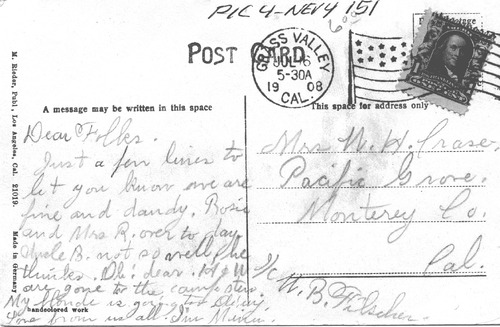 PIC 4-NEV 4 151
POST CARD
GRASS VALLEY
JUL 16
5-30A
1908
CAL.
A message may be written in this space
This space for address only
M. Rieder, Publ. Los Angeles, Cal. 21019 Made in Germany
Dear Folks.
Just a few lines to
let you know we are
fine and dandy. Rosie
and Mrs R. over to day
Uncle B. not so well, he
thinks. Oh! dear.
are gone to the
My is going to
from us all. I'm
handcolored work
Mrs W. H. Crase,
Pacific Grove.
Monterey Co.
Cal.
c/o W. B. Filcher.